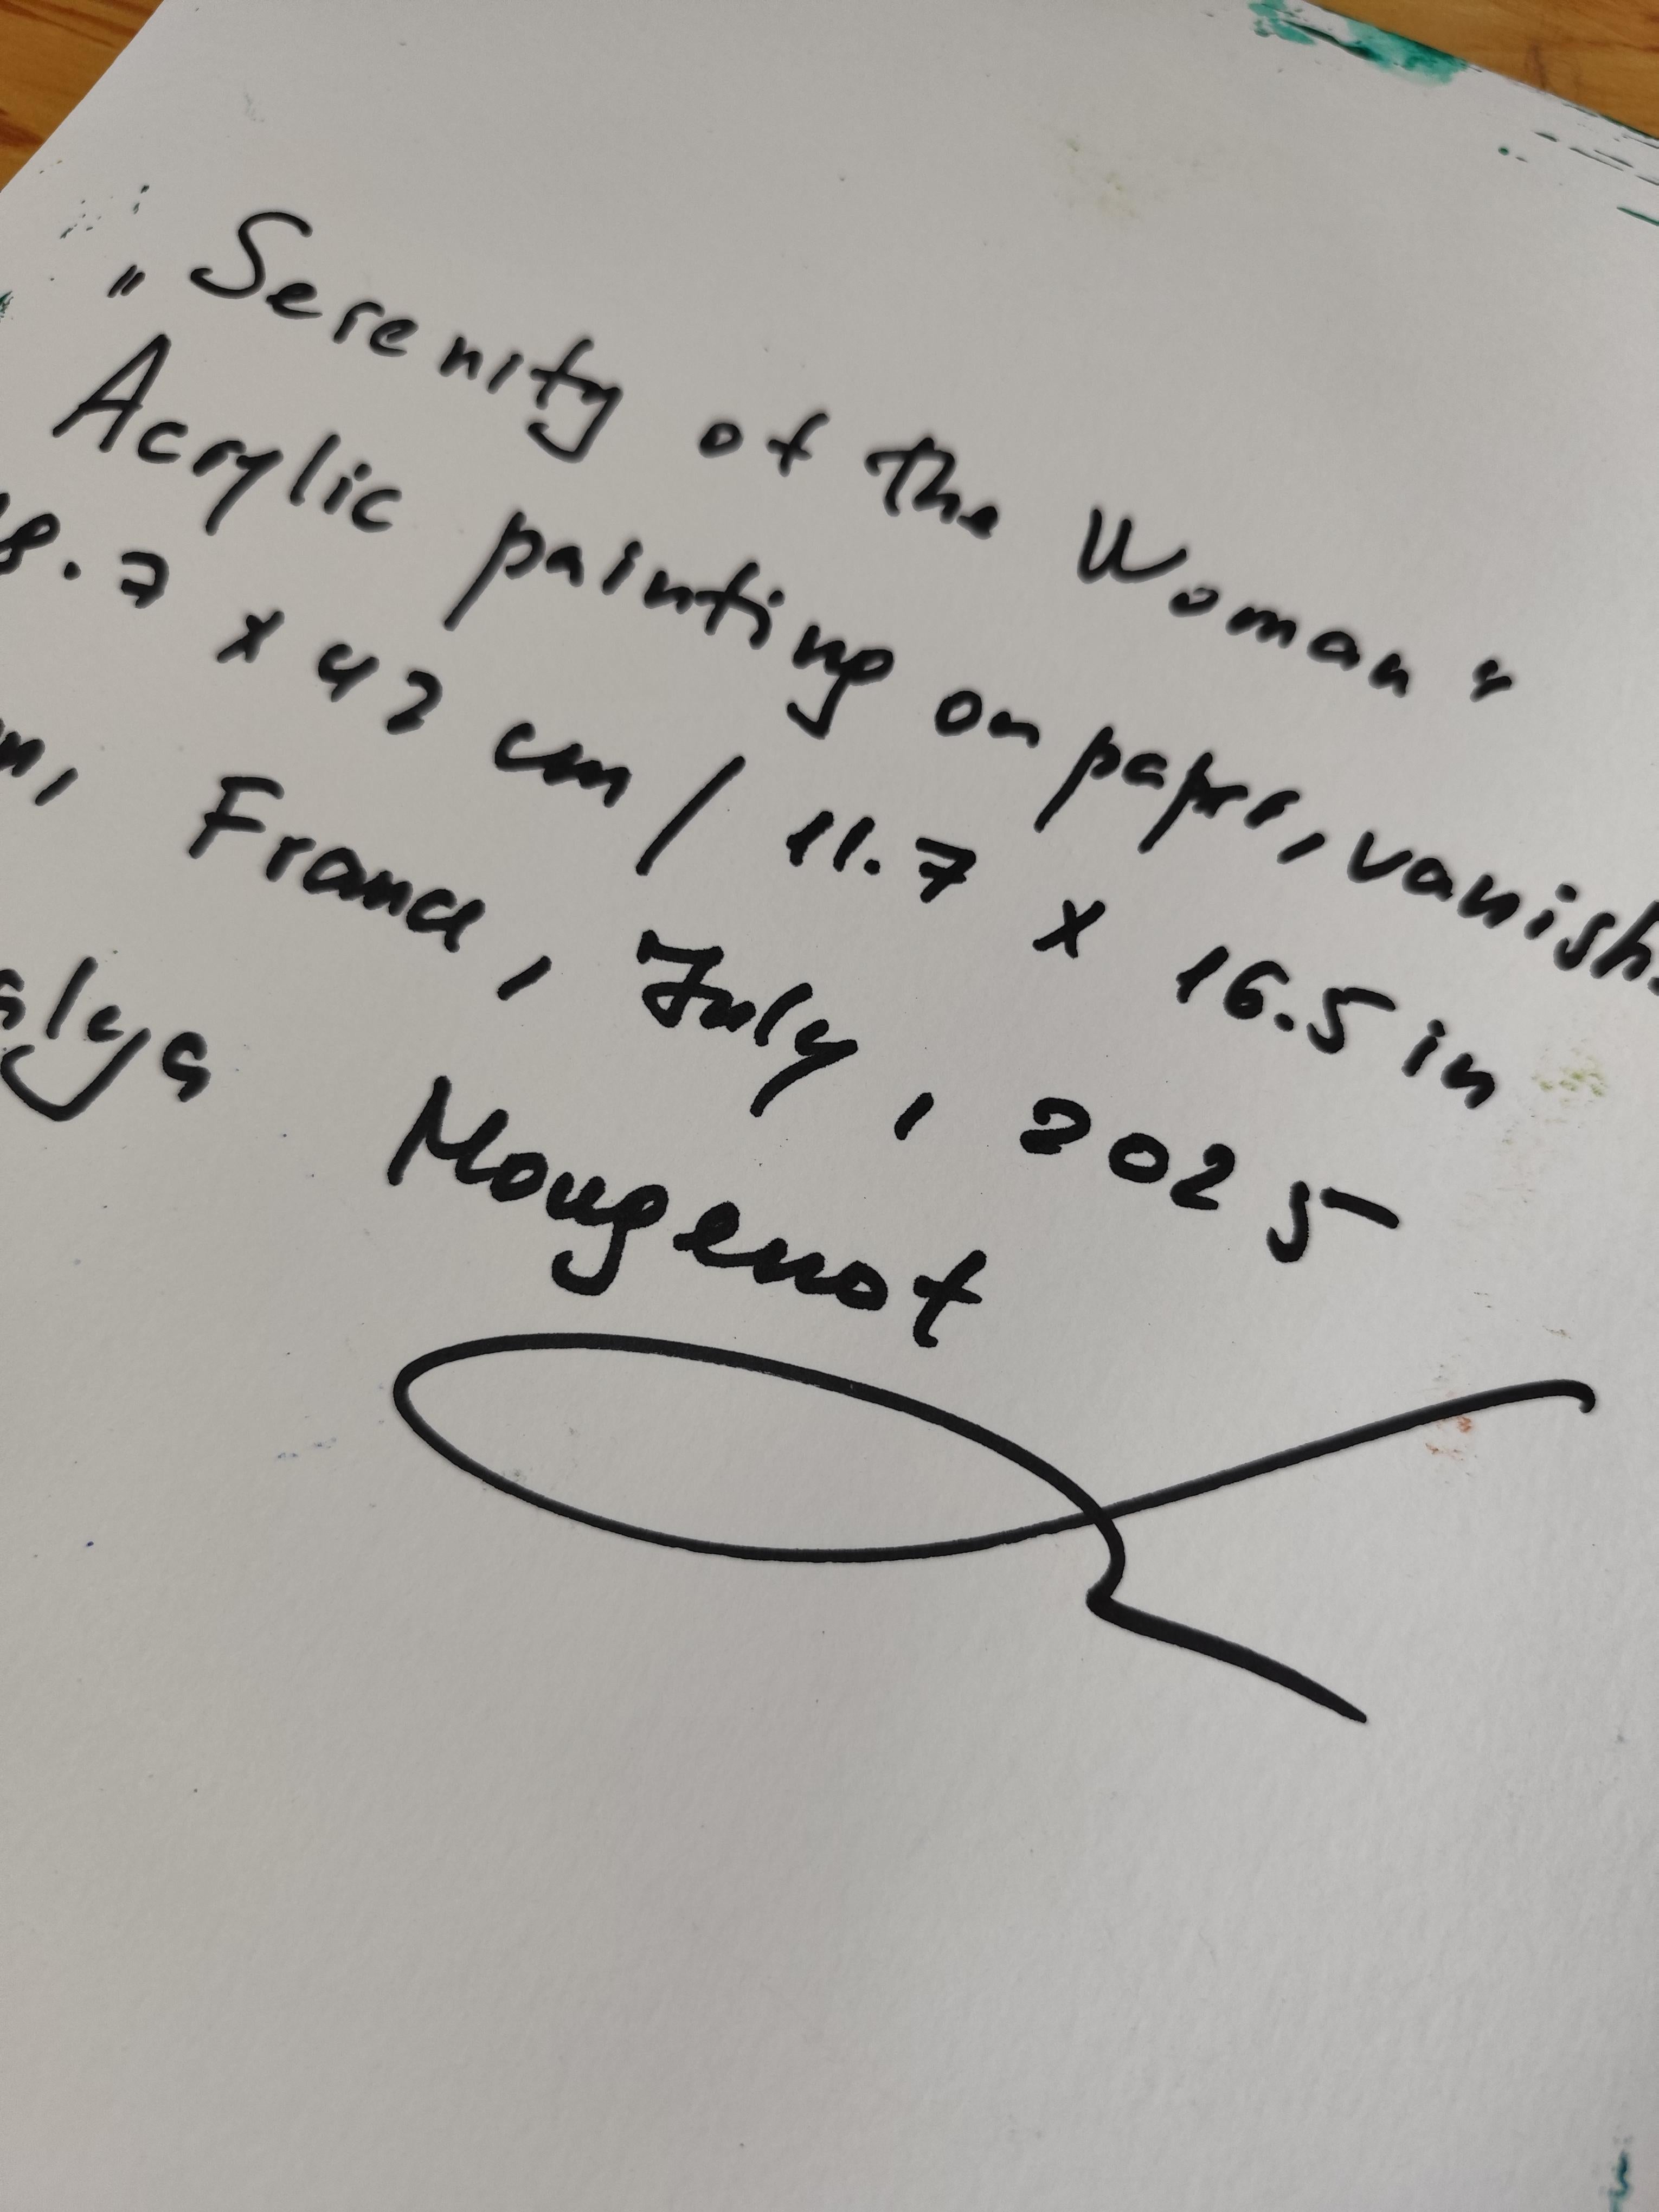 „Serenity of the Woman“
Acrylic painting on paper, vanish.
8.7 x 42 cm / 11.7 x 16.5 in
n, France, July, 2025
alya Mougenot